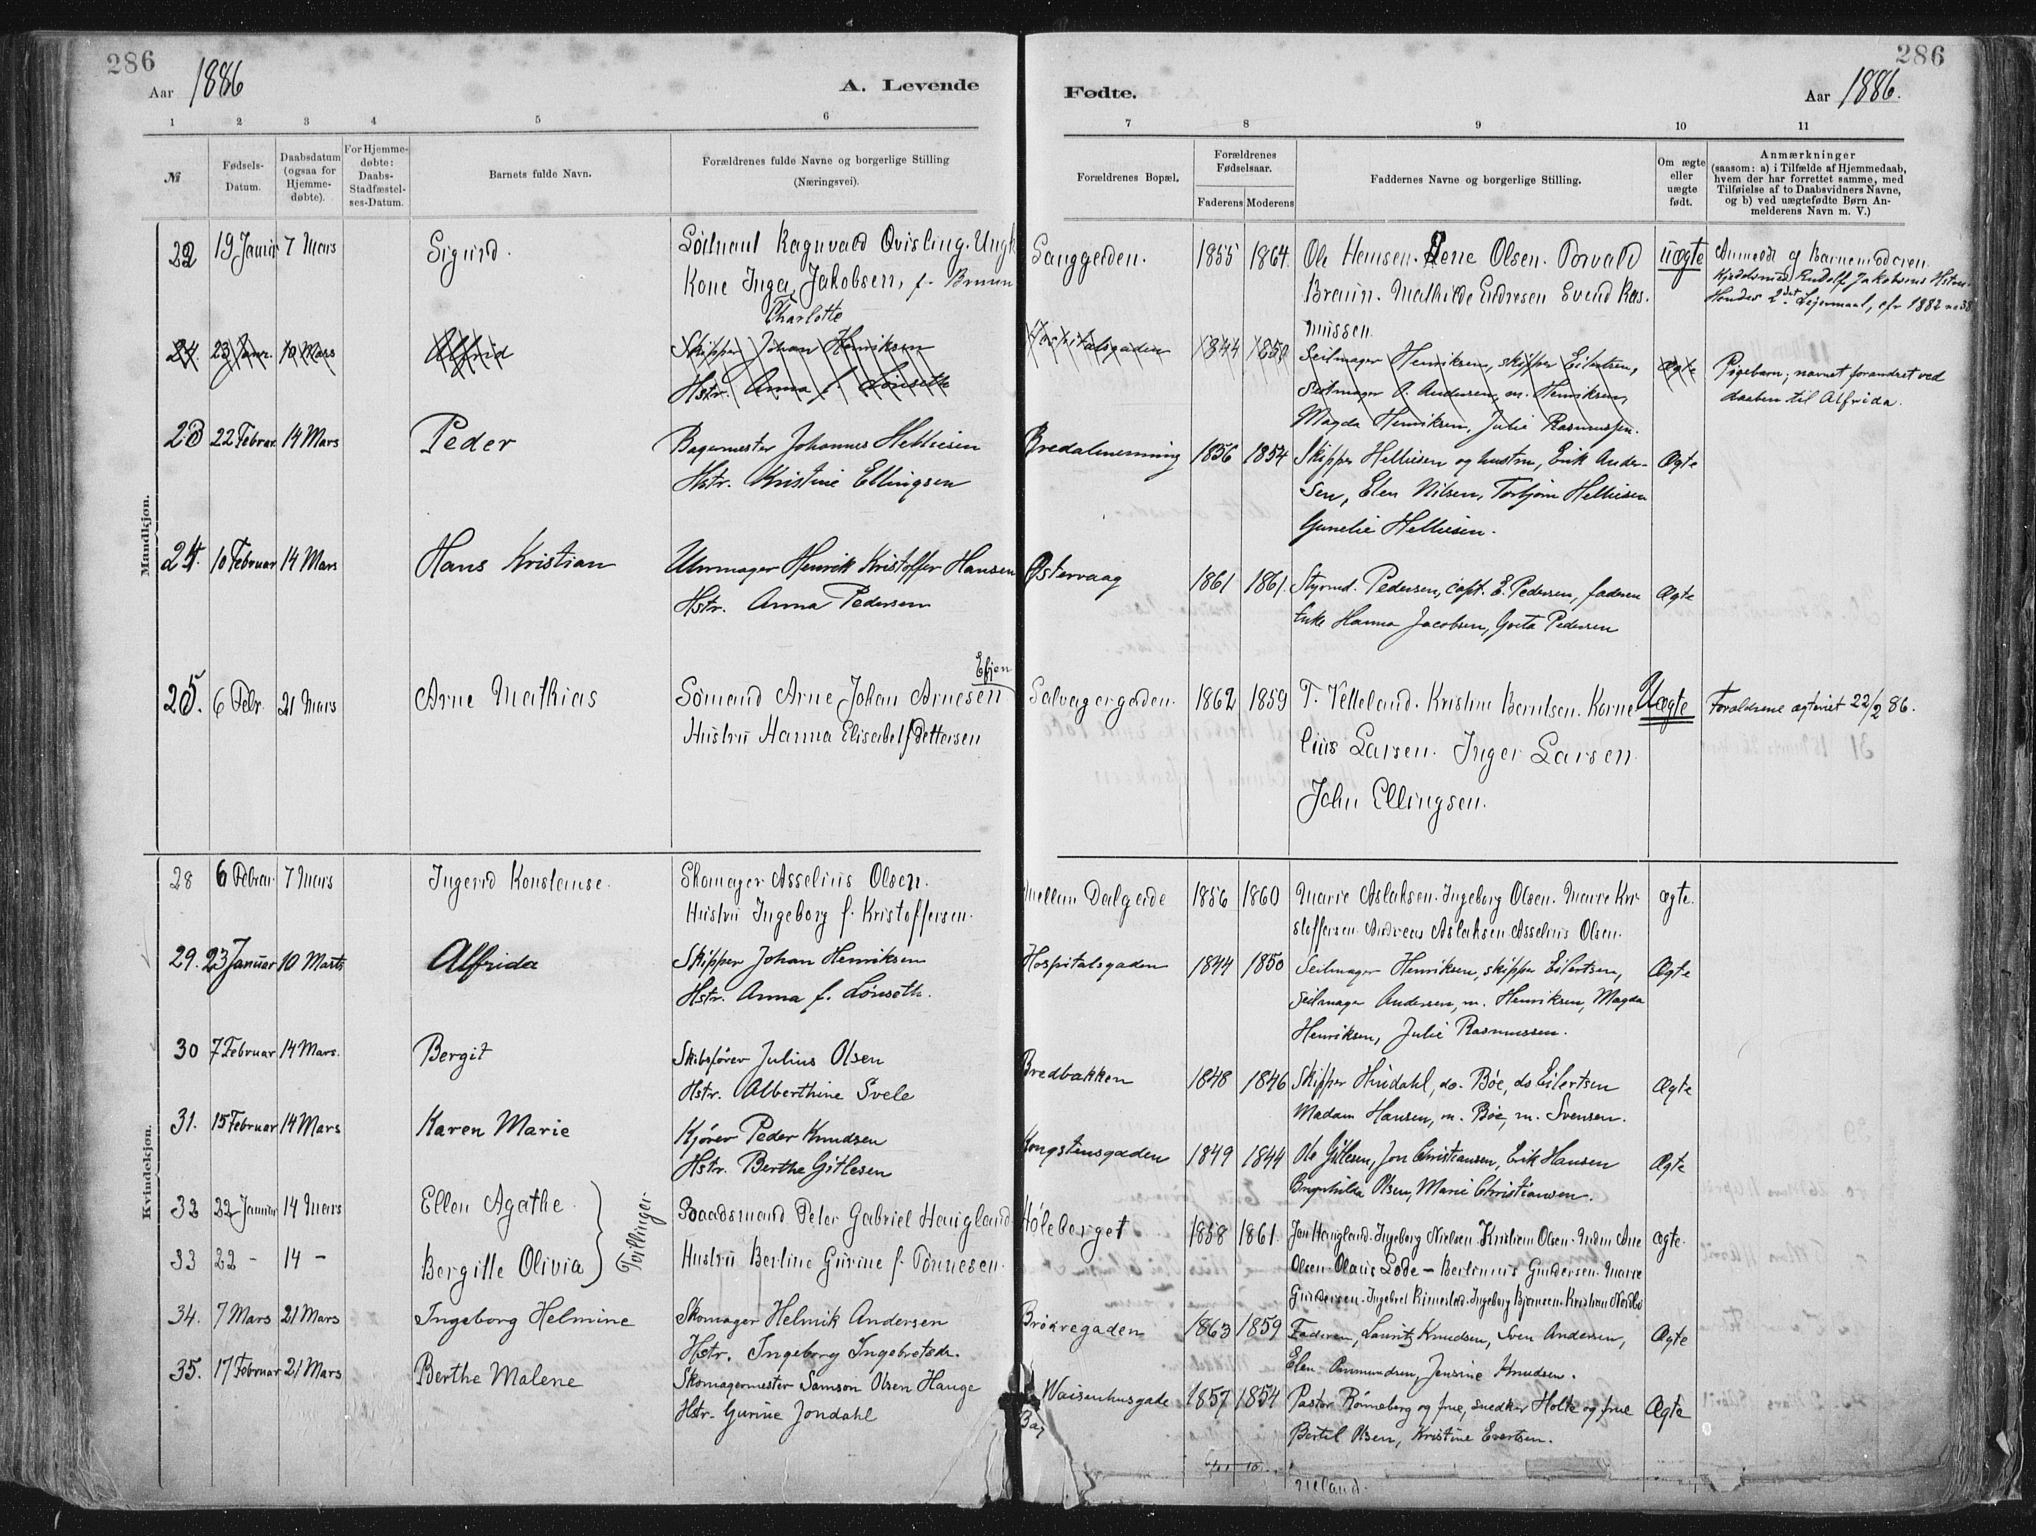 286
286
Aar 1886
A. Levende
Fødte.
Aar 1886.
1 2 3 4 5 6
7 8 9 10 11
№
Fødsels-Datum.
Daabsdatum (ogsaa for Hjemme-døbte).
For Hjemme-døbte: Daabs-Stadfæstel-ses-Datum.
Barnets fulde Navn.
Forældrenes fulde Navne og borgerlige Stilling (Næringsvei).
Forældrenes Bopæl.
Forældrenes Fødselsaar.
Faderens Moderens
Faddernes Navne og borgerlige Stilling.
Om ægte eller uægte født.
Anmærkninger
(saasom: a) i Tilfælde af Hjemmedaab,
hvem der har forrettet samme, med
Tilføielse af to Daabsvidners Navne,
og b) ved uægtefødte Børn An-
melderens Navn m. V.)
Mandkjøn.
22 19 Januar 7 Mars Sigurd. Ragnvald Qvisling. Ungk 1855 1864 Ole Hansen. Lene Olsen. Torvald uægte Anmeldt af Barnemoderen
Kone Inga Jakobsen, f. Bruun
Charlotte
Mathilde Endresen Svend Ras-
mussen
24. 23 Janr. 10 Mars Alfrid Skipper Johan Henriksen Hospitalsgaden 1844 1850 Seilmager Henriksen, skipper Eilertsen, Ægte Pigebarn; navnet forandret ved
Hstr. Anna f. Lönseth Seilmager A. Andersen, m. Henriksen, daaben til Alfrida.
Magda Henriksen, Julie Rasmussen.
23 22 Februar 14 Mars Peder Bagermester Johannes Helliesen 1856 1854 Skipper Helliesen og hustru, Erik Ander- Ægte
Hstr. Kristine Ellingsen sen, Elen Nilsen, Torbjørn Helliesen
Gunelie Helliesen.
24. 10 Februar 14 Mars Hans Kristian Uhrmager Henrik Kristoffer Hansen Østervaag 1861 1861. Styrmd. Pedersen, capt. E. Pedersen, faderen Ægte
Hstr. Anna Pedersen Enke Hanna Jacobsen, Greta Pedersen
25. 6 Febr. 21 Mars Arne Mathias Sømand Arne Johan Arnesen 1862 1859 T. Velleland. Kristine Berntsen. Korne- Uægte Forældrene ægteviet 22/2 86.
Hustru Hanna Elisabet Pettersen lius Larsen. Inger Larsen
John Ellingsen.
Kvindekjøn.
28 6 Februar 7 Mars Ingerid Konstanse. Skomager Asselius Olsen. Mellem Dalgade 1856 1860 Marie Aslaksen. Ingeborg Olsen. Marie Kri- ægte.
Hustru Ingeborg f. Kristoffersen. stoffersen Andreas Aslaksen Asselius Olsen.
29. 23 Januar 10 Marts Alfrida Skipper Johan Henriksen Hospitalsgaden 1844 1850 Seilmager Henriksen, skipper Eilertsen, Ægte
Hstr. Anna f. Lönseth. Seilmager Andersen, m. Henriksen, Magda
Henriksen, Julie Rasmussen.
30 7 Februar 14 Mars. Bergit Skibsfører Julius Olsen Bredbakken 1848 1846 Skipper Hindahl, do. Bøe, do Eilertsen Ægte
Hstr. Alberthine Svele Madam Hansen, m. Bøe, m. Svensen.
31. 15 Februar 14 Mars Karen Marie Kjører Peder Knudsen Kongstensgaden 1849 1844 Ole Gitlesen, Jon Christiansen, Erik Hansen Ægte
Hstr. Berthe Gitlesen Brynhilda Olsen, Marie Christiansen.
32 22 Januar 14 Mars Ellen Agathe. Baadsmand Peter Gabriel Haugland Høleberget 1858 1861. Jon Haugland. Ingeborg Nielsen. Kristian Olsen. ægte.
Tvillinger
33 22 - 14 - Bergitte Olivia Hustru Bertine Gurine f. Tönnesen. Olsen Olaus Lode - Gundersen. Marie
Gundersen. Ingebret Rimestad. Ingeborg Bjørnsen. Kristian
34. 7 Mars 21 Mars Ingeborg Helmine Skomager Helmik Andersen 1863 1859 Faderen, Lauritz Knudsen, Sven Andersen, Ægte
Hstr. Ingeborg Ingebretsdr. Elen Ammundsen, Jensine Knudsen.
35. 17 Februar 21 Mars Berthe Malene Skomagermester Samson Olsen Hauge Waisenhusgade 1857 1854 Pastor Rönneberg og frue, snedker Holte og frue Ægte
Hstr. Gurine Jondahl Bertil Olsen, Kristine Evertsen.